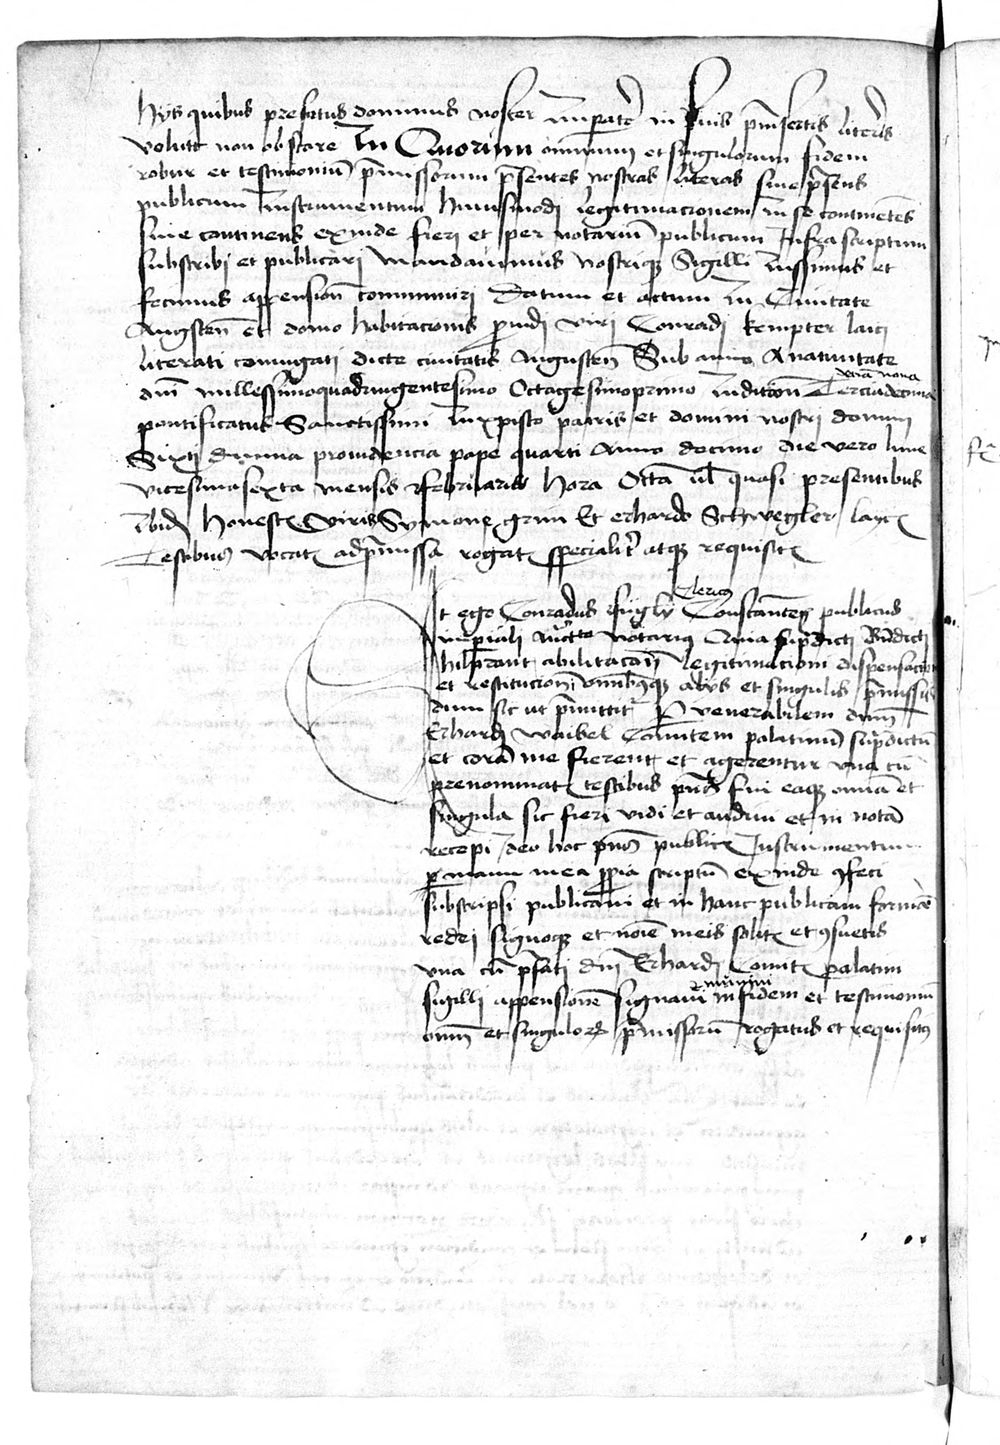 hijs quibus prefatus dominus noster Impator in suis pⁱnsertis literis
voluit non obstare In Quorum omnium et singulorum fidem
robur et testimoniū p̄missorum p̄sentes nostras literas siue p̄sens
publicum Instrumentum huiusmodi legitimacionem in se continētes
siue continens exinde fieri et per notariū publicum Infrascriptum
subscribi et publicari mandauimus nostrique Sigilli iussimus et
fecimus appensionē communiri Datum et actum in Ciuitate
Augusteñ et domo habitacionis prouidi viri Conradi kempter laici
literati coniugati dicte ciuitatis Augusteñ Sub anno A natiuitate
dm̄ millesimoquadringentesimo Octagesimoprimo Indictioñ Terciadecima
pontificatus Sanctissimi in xpisto patris et domini nostri domini
Sixti diuina prouidencia pape quarti Anno decimo die vero lune
vicesimasexta mensis Februarii hora Octāa ul̄ quasi presentibus
ibidē honestis viris Symone grim Et erhardo Schwegler laycis
Testibus vocatis ad p̄missa rogatis specialiter atque requisitis
Clericus
Et ego Conradus Fugly Constancieñ publicus
imperiali auctte notarius Quia supradicti Bn̄dicti
hilprant abilitacōni legitimacioni dispensacioni
et restitucioni omnibusque alijs et singulis p̄missis
dum sic ut p̄mittitur per venerabilem dn̄m
Erhardū waibel Comitem palatinū supradictū
et corā me fierent et agerentur vna cū
prenominatis testibus pn̄s fui eaque omnia et
singula sic fieri vidi et audiui et in notā
recepi Ideo hoc pn̄s publicū Instrumentum
p manu mea propria scriptū exinde confeci
subscripsi publicaui et in hanc publicam formā
redegi signoque et noīe meis solitis et consuetis
vna cū p̄fati dn̄i Erhardi Comitis palatini
sigilli appensione signaui in fidem et testimoniū
omniū et singulorum p̄missorū rogatus et requisitus